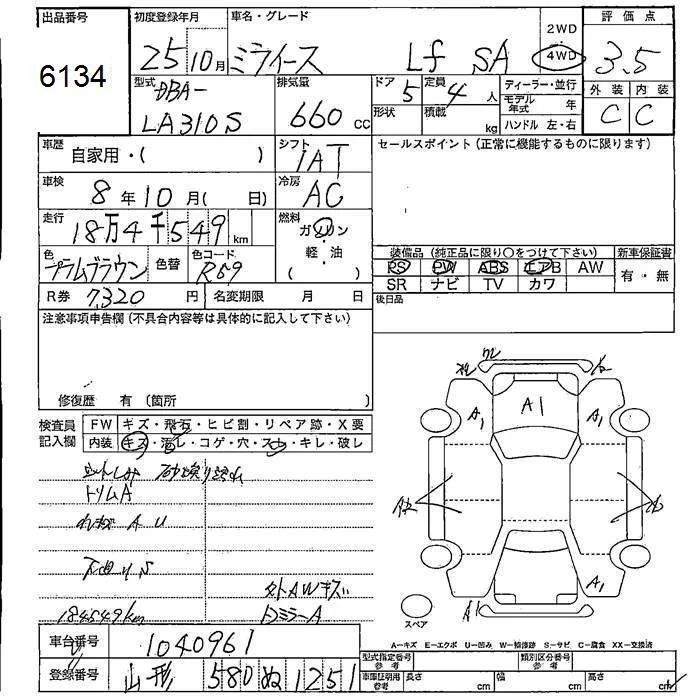 出品番号
6134
初度登録年月
25 10月
車名・グレード
ミライース Lf SA
2WD
4WD
評価点
3.5
外装 内装
C C
型式
DBA-
LA310S
排気量
660 cc
ドア
5
形状
定員
4 人
積載
kg
ディーラー・並行
モデル年式 年
ハンドル 左・右
車歴
自家用・( )
シフト
IAT
セールスポイント(正常に機能するものに限ります)
車検
8年10月( 日)
冷房
AC
走行
18万4千549 km
燃料
ガソリン
・
軽・油
( )
色
プラムブラウン
色替
色コード
R59
装備品 (純正品に限り○をつけて下さい)
PS PW ABS エアB AW
SR ナビ TV カワ
新車保証書
有・無
R券 7,320 円
名変期限 月 日
後日品
注意事項申告欄(不具合内容等は具体的に記入して下さい)
修復歴 有 (箇所 )
検査員記入欄
FW キズ・飛石・ヒビ割・リペア跡・X要
内装 キズ・汚レ・コゲ・穴・スレ・キレ・破レ
トリムA
下廻りS
外AWキズ
DミラーA
184549km
A1
A1
A1
A1
A1
スペア
A=キズ E=エクボ U=凹み W=補修跡 S=サビ C=腐食 XX=交換済
車台番号
1040961
登録番号
山形 580 ぬ 1251
型式指定番号 参考
類別区分番号 参考
車庫証明用 参考
長さ cm
幅 cm
高さ cm